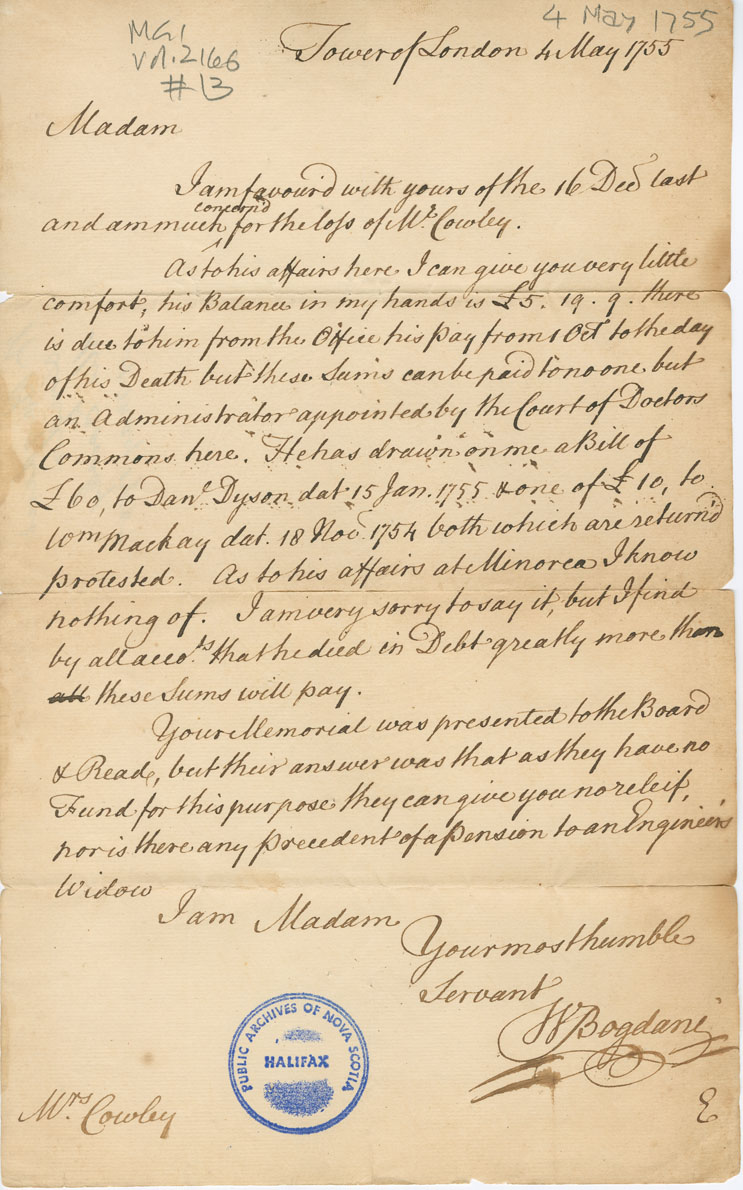 4 May 1755
MG1
Vol. 2166
#13
Tower of London 4 May 1755
Madam
I am favour'd with yours of the 16 Decr last
and am much concern'd for the loss of Mr. Cowley.
As to his affairs here I can give you very little
comfort, his Balance in my hands is £5. 19. 9. there
is due to him from the Office his pay from 1 Oct to the day
of his Death but these Sums can be paid to no one but
an Administrator appointed by the Court of Doctors
Commons here. He has drawn on me a Bill of
£60, to Danl. Dyson dat 15 Jan. 1755 & one of £10, to
Wm Mackay dat. 18 Novr 1754 both which are return'd
protested. As to his affairs at Minorca I know
nothing of. I am very sorry to say it, but I find
by all acco.ts that he died in Debt greatly more than
all these Sums will pay.
Your Memorial was presented to the Board
& Read, but their answer was that as they have no
Fund for this purpose they can give you no releif,
nor is there any Precedent of a Pension to an Engineers
Widow
I am Madam
Your most humble
Servant
W Bogdani
PUBLIC ARCHIVES OF NOVA SCOTIA
HALIFAX
Mrs Cowley
E